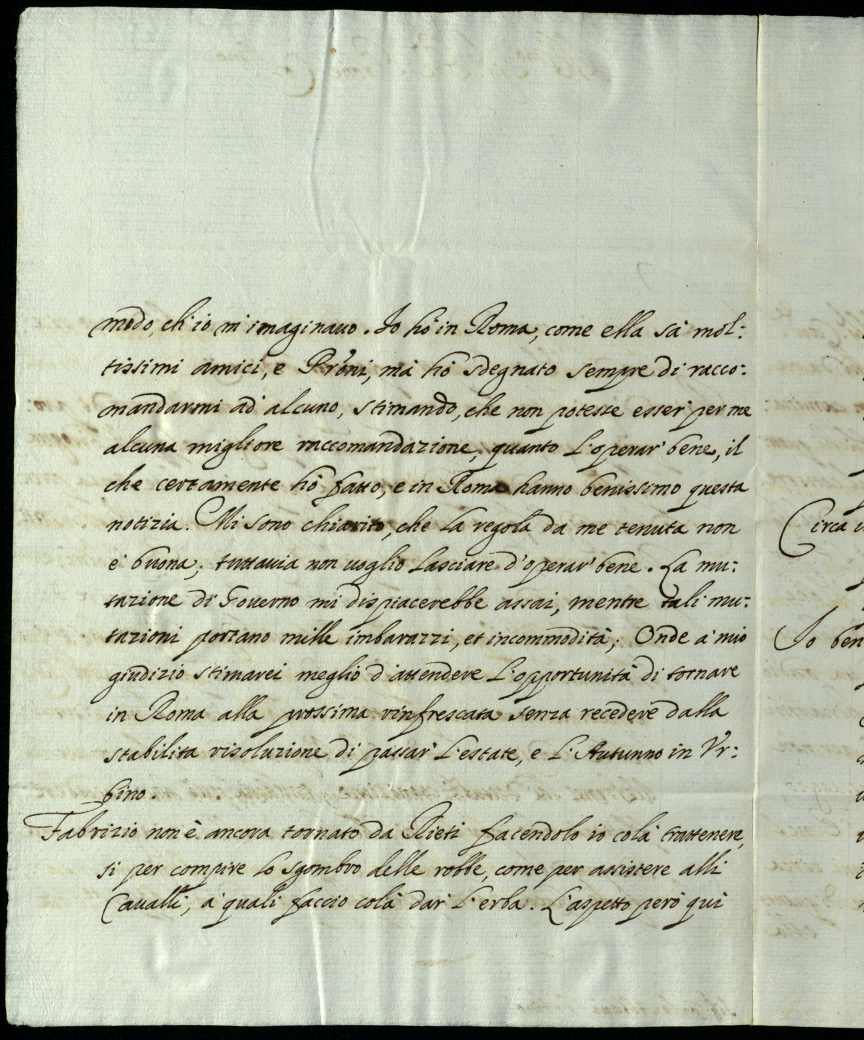 modo, ch'io m'imaginauo. Io hò in Roma, come ella sà mol:
tissimi amici, e Prōni, mà hò sdegnato sempre di racco:
mandarmi ad alcuno, stimando, che non potesse esser' per me
alcuna migliore raccomandazione, quanto l'operar' bene, il
che certamente hò fatto, e in Roma hanno benissimo questa
notizia. Mi sono chiarito, che la regola da me tenuta non
è buona; tuttauia non uoglio lasciare d'operar' bene. La mu:
tazione di Gouerno mi dispiacerebbe assai, mentre tali mu:
tazioni portano mille imbarazzi, et incommodità; Onde a' mio
giudizio stimarei meglio d'attendere l'opportunità di tornare
in Roma alla prossima rinfrescata senza recedere dalla
stabilita risoluzione di passar' l'estate, e l'Autunno in Vr:
bino.
Fabrizio non è ancora tornato da Rieti facendolo io colà trattenere,
sì per compire lo sgombro delle robbe, come per assistere alli
Caualli, a' quali faccio colà dar' l'erba. L'aspetto però quì
Circa
Io ben